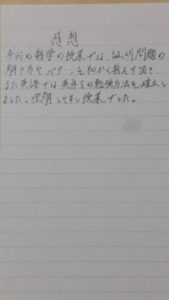 感想
今回の数学の授業では、証明問題の
解き方やパターンを細かく教えて頂き、
また英語では英序での勉強方法を確立し
ました。充実した良い授業でした。